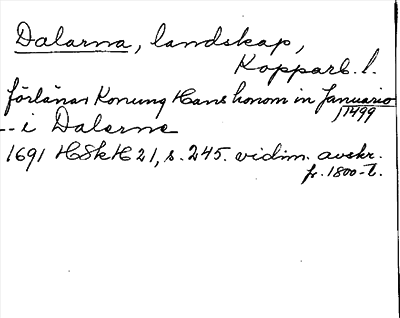 Dalarna, landskap,
Kopparb. l.
förlänar Konung Hans honom in Januario
1499
-- i Dalerne
1691 HSkH 21, s. 245. vidim. avskr.
fr. 1800-t.